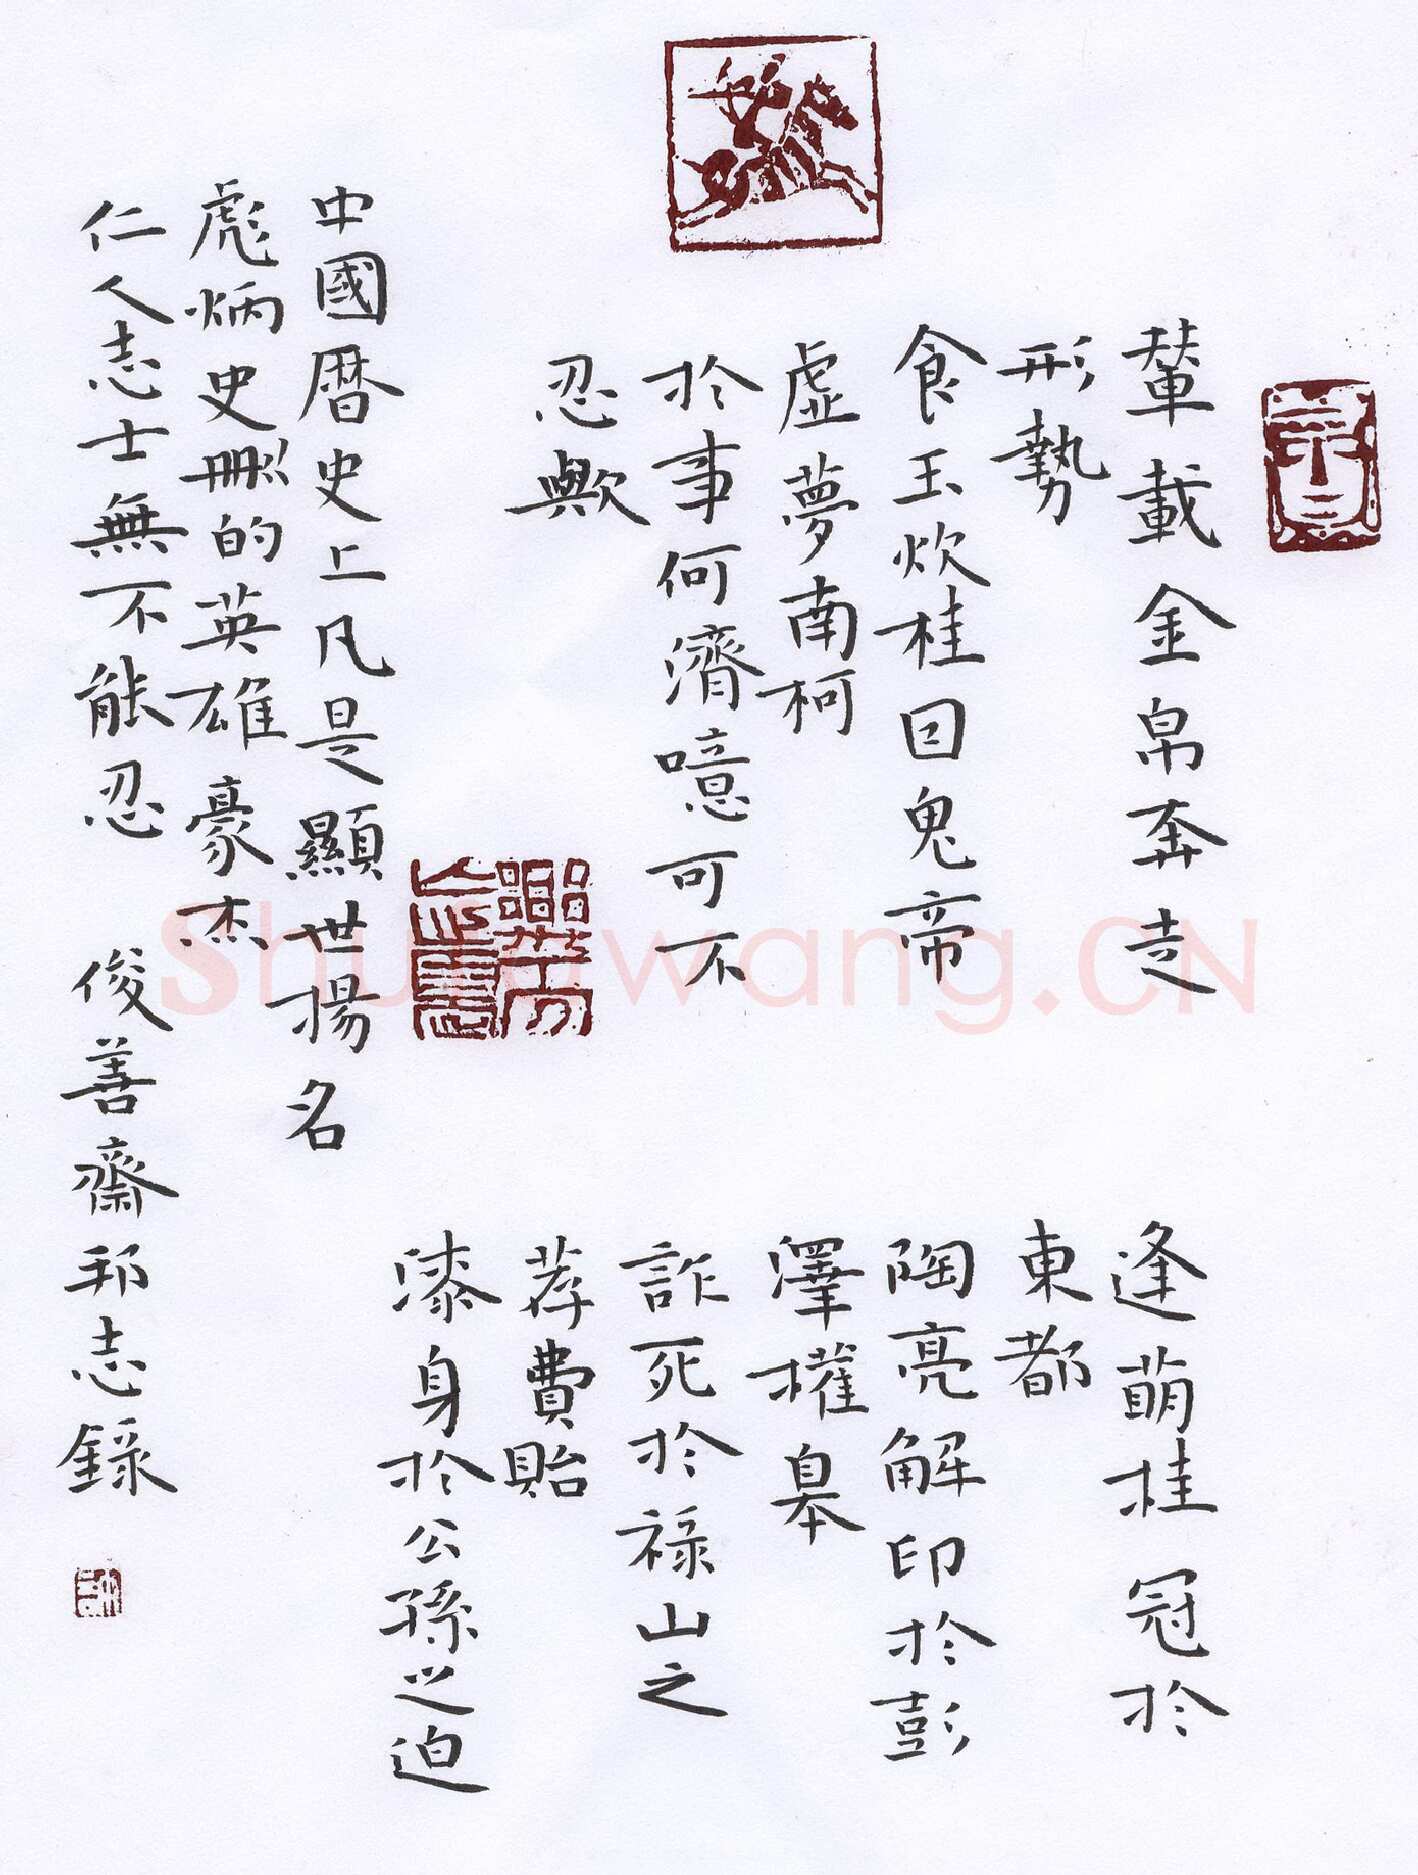 輦載金帛奔走
形勢
食玉炊桂囙鬼帝
虛夢南柯
於事何濟噫可不
忍歟
逢萌挂冠於
東都
陶亮解印於彭
澤權皋
詐死於祿山之
荐費貽
漆身於公孫之迫
中國曆史上凡是顯世揚名
彪炳史冊的英雄豪杰
仁人志士無不能忍 俊善齋邦志錄
Shufawang.CN